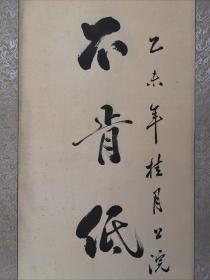 乙未年桂月公浣
不肯低